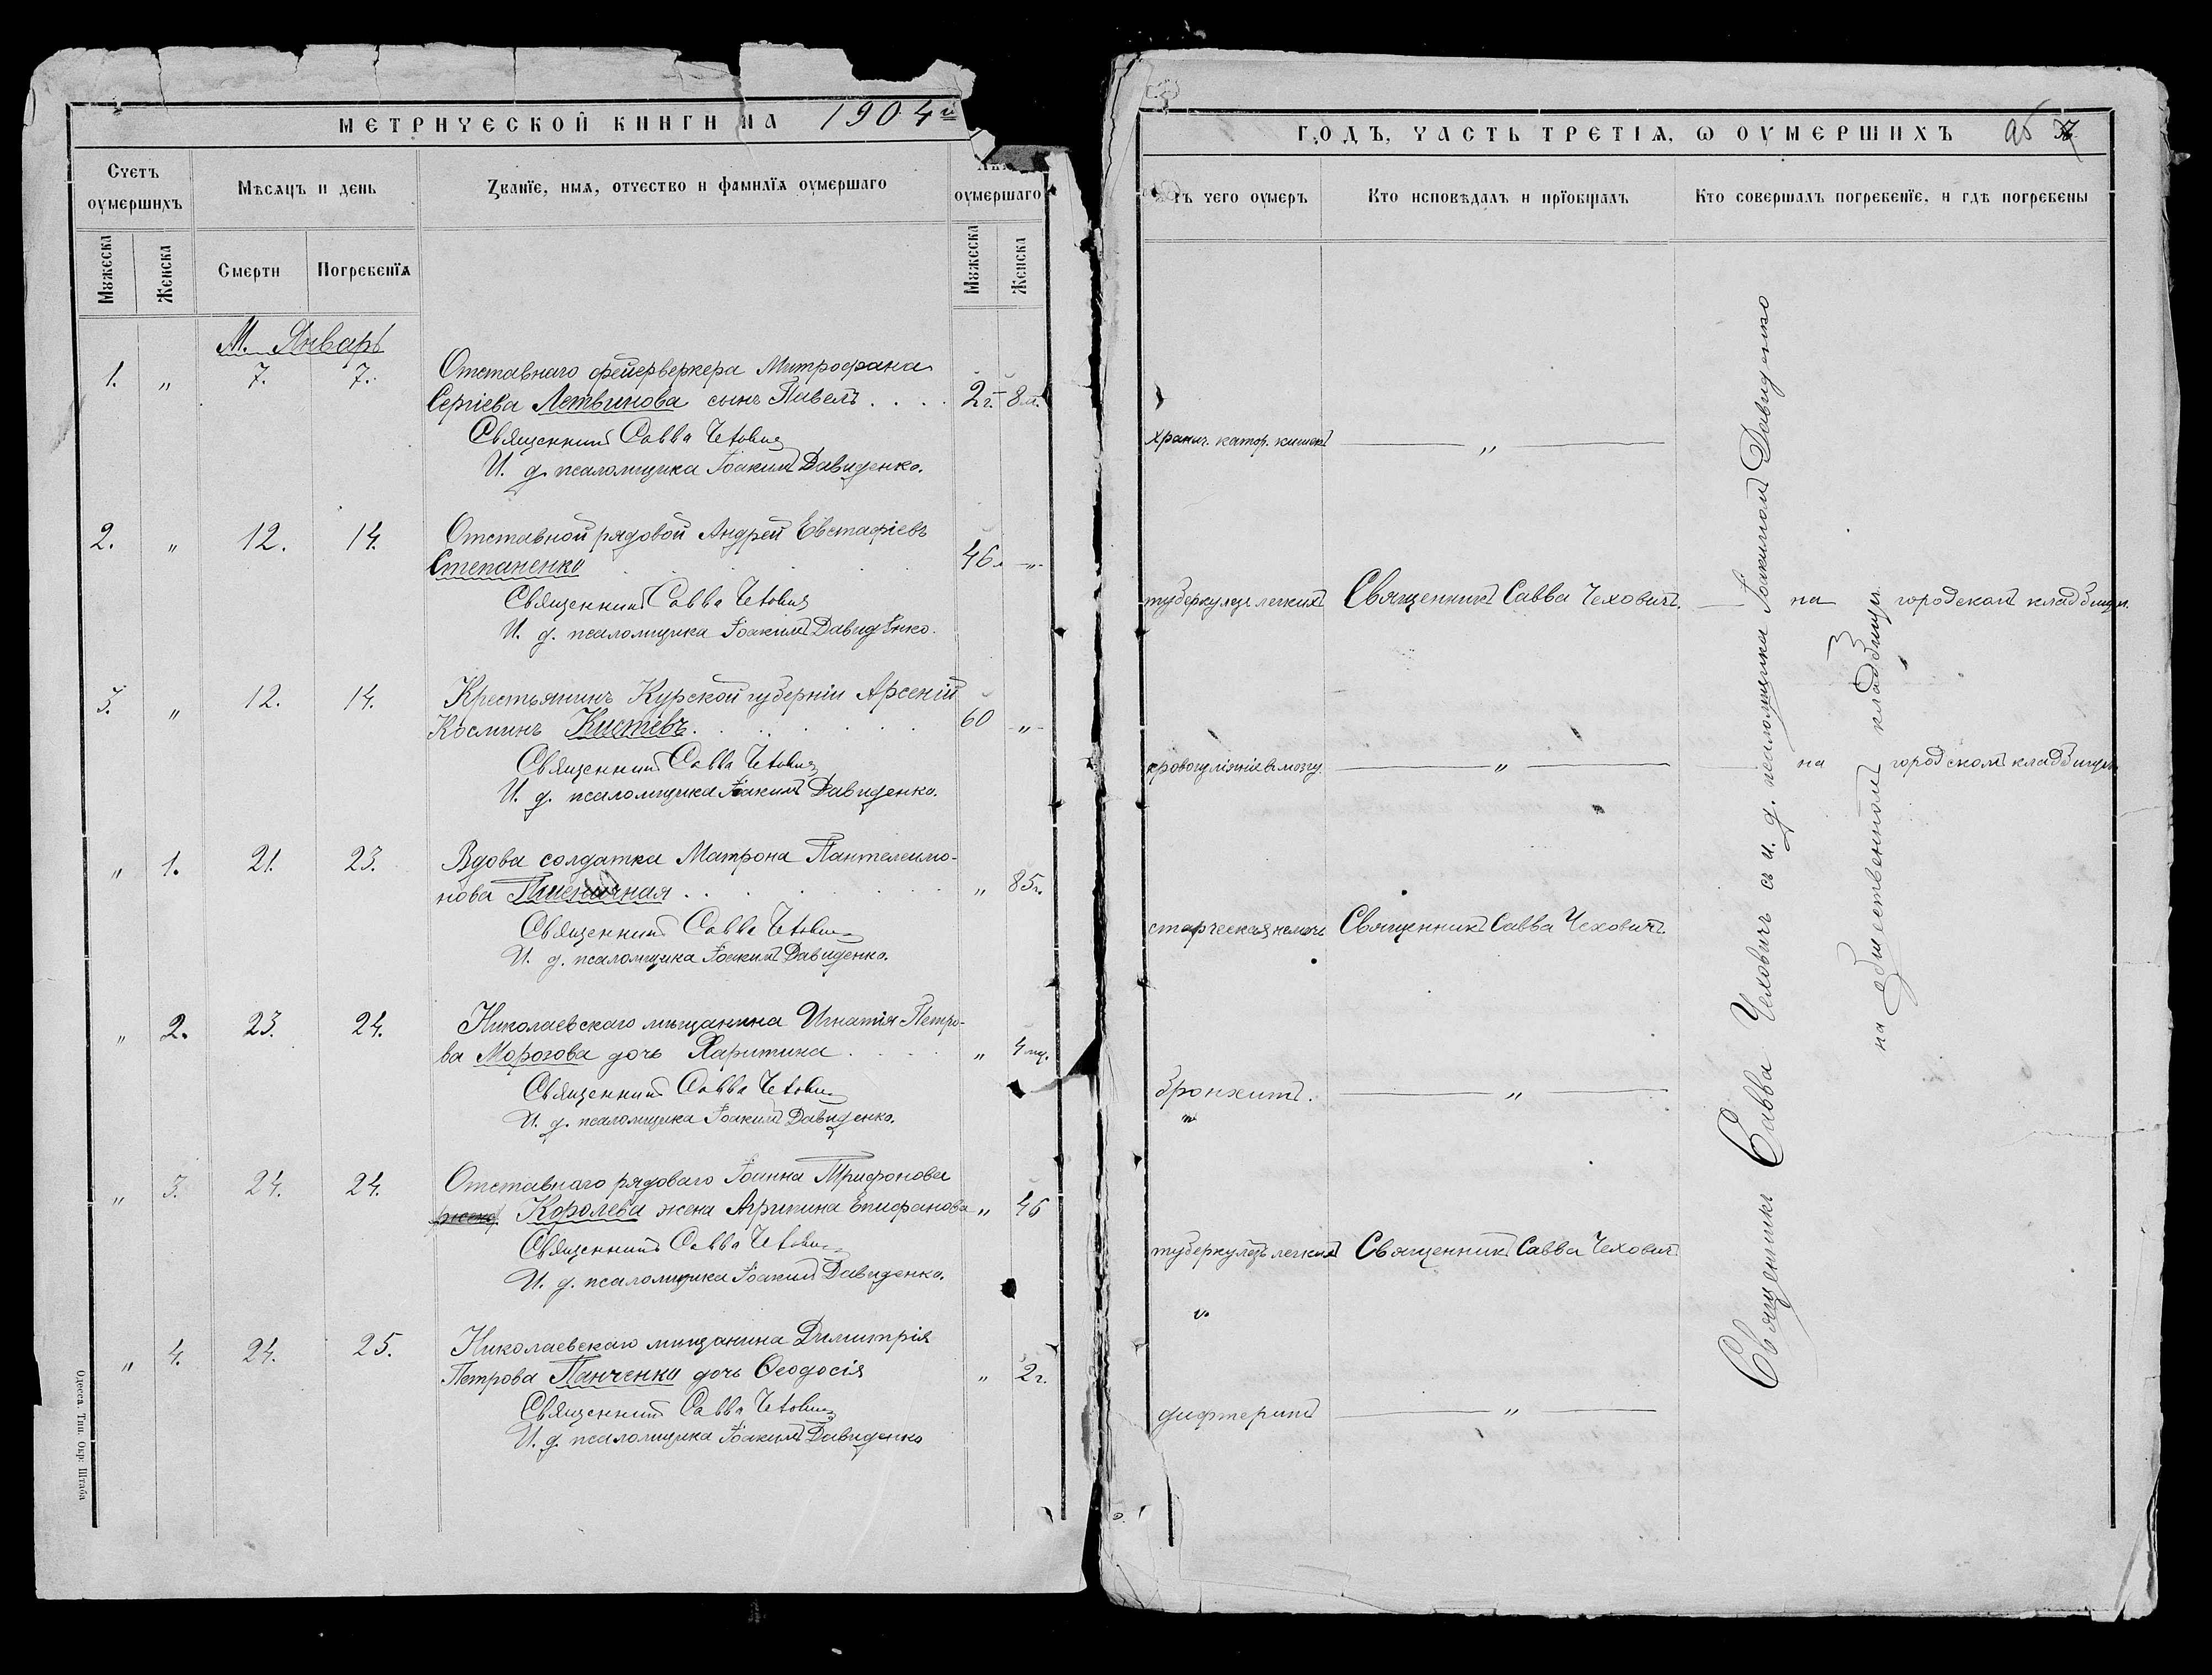 МЕТРИЧЕСКОЙ КНИГИ НА 1904й
Счетъ оумершихъ
Мѣсяцъ и день
Званїе, имя, отчество и фамилїя оумершаго
оумершаго
Мужеска
Женска
Смерти
Погребенїя
Мужеска
Женска
М. Январь
1. „ 7. 7. Отставнаго фейерверкера Митрофана
Сергіева Летвинова сынъ Павелъ . . . . 2 г. 8 м.
Священникъ Савва Чехович
И. д. псаломщика Іоакимъ Давиденко.
2. „ 12. 14. Отставной рядовой Андрей Евстафіевъ
Степаненко 46 л „
Священникъ Савва Чехович
И. д. псаломщика Іоакимъ Давиденко.
3. „ 12. 14. Крестьянинъ Курской губерніи Арсеній
Косминъ Кистевъ 60 „
Священникъ Савва Чехович
И. д. псаломщика Іоакимъ Давиденко.
„ 1. 21. 23. Вдова солдатка Матрона Пантелеимо-
нова Пшеничная . . „ 85 л.
Священникъ Савва Чехович
И. д. псаломщика Іоакимъ Давиденко.
„ 2. 23. 24. Николаевскаго мѣщанина Игнатія Петро-
ва Морозова дочь Харитина „ 4 мц.
Священникъ Савва Чехович
И. д. псаломщика Іоакимъ Давиденко.
„ 3. 24. 24. Отставнаго рядоваго Іоанна Трифонова
Королева жена Агрипина Епифанова „ 46
Священникъ Савва Чехович
И. д. псаломщика Іоакимъ Давиденко.
„ 4. 24. 25. Николаевскаго мѣщанина Димитрія
Петрова Панченко дочь Ѳеодосія „ 2 г.
Священникъ Савва Чехович
И. д. псаломщика Іоакимъ Давиденко
Одесса. Тип. Окр. Штаба
ГОДЪ, ЧАСТЬ ТРЕТІЯ, Ѡ ОУМЕРШИХЪ
чего оумеръ
Кто исповѣдалъ и прїобщалъ
Кто совершалъ погребенїе, и гдѣ погребены
хранич. катар. кишекъ „
туберкулезъ легкихъ Священникъ Савва Чеховичъ. на городскомъ кладбищѣ.
кровоизліяніе въ мозгу „ на городскомъ кладбищѣ
старческая немочь Священникъ Савва Чеховичъ
бронхитъ. „
туберкулезъ легкихъ Священникъ Савва Чеховичъ
дифтеритъ „
Священникъ Савва Чеховичъ съ и. д. псаломщика Іоакимомъ Давиденко
на общественномъ кладбищѣ.